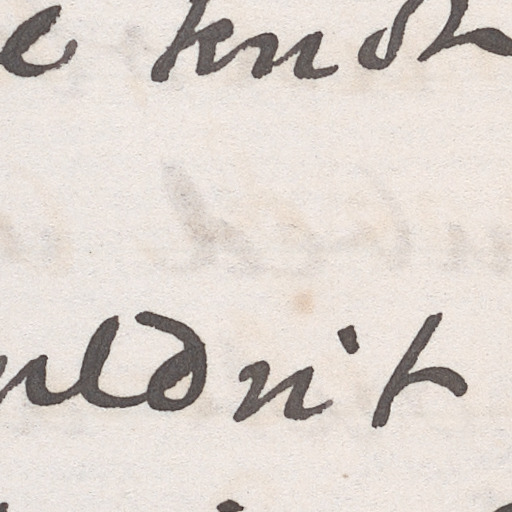 e knot
uldn't